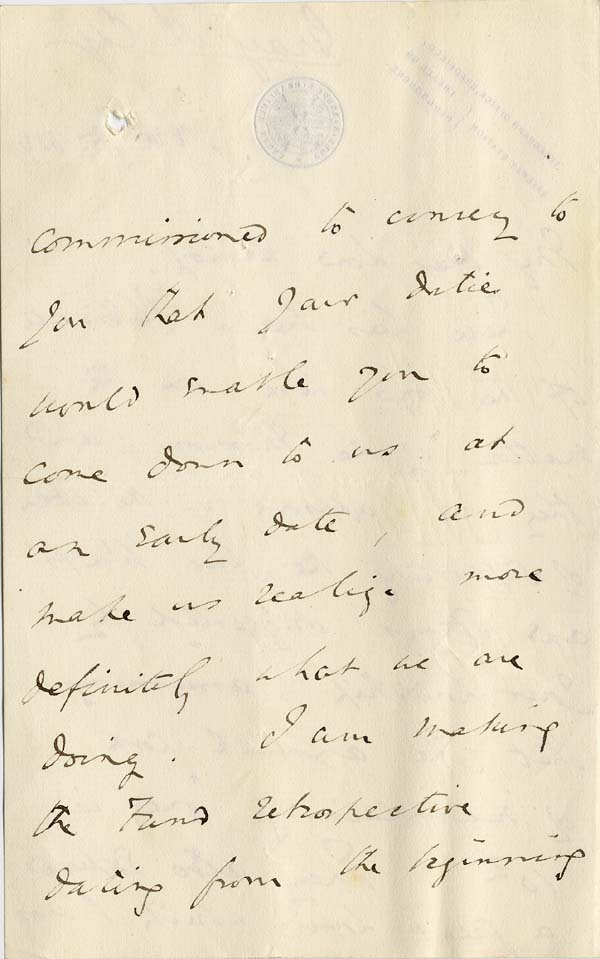 commissioned to convey to
you that your duties
would enable you to
come down to us at
an early date, and
make us realize more
definitely what we are
doing. I am making
the Fund retrospective
dating from the beginning